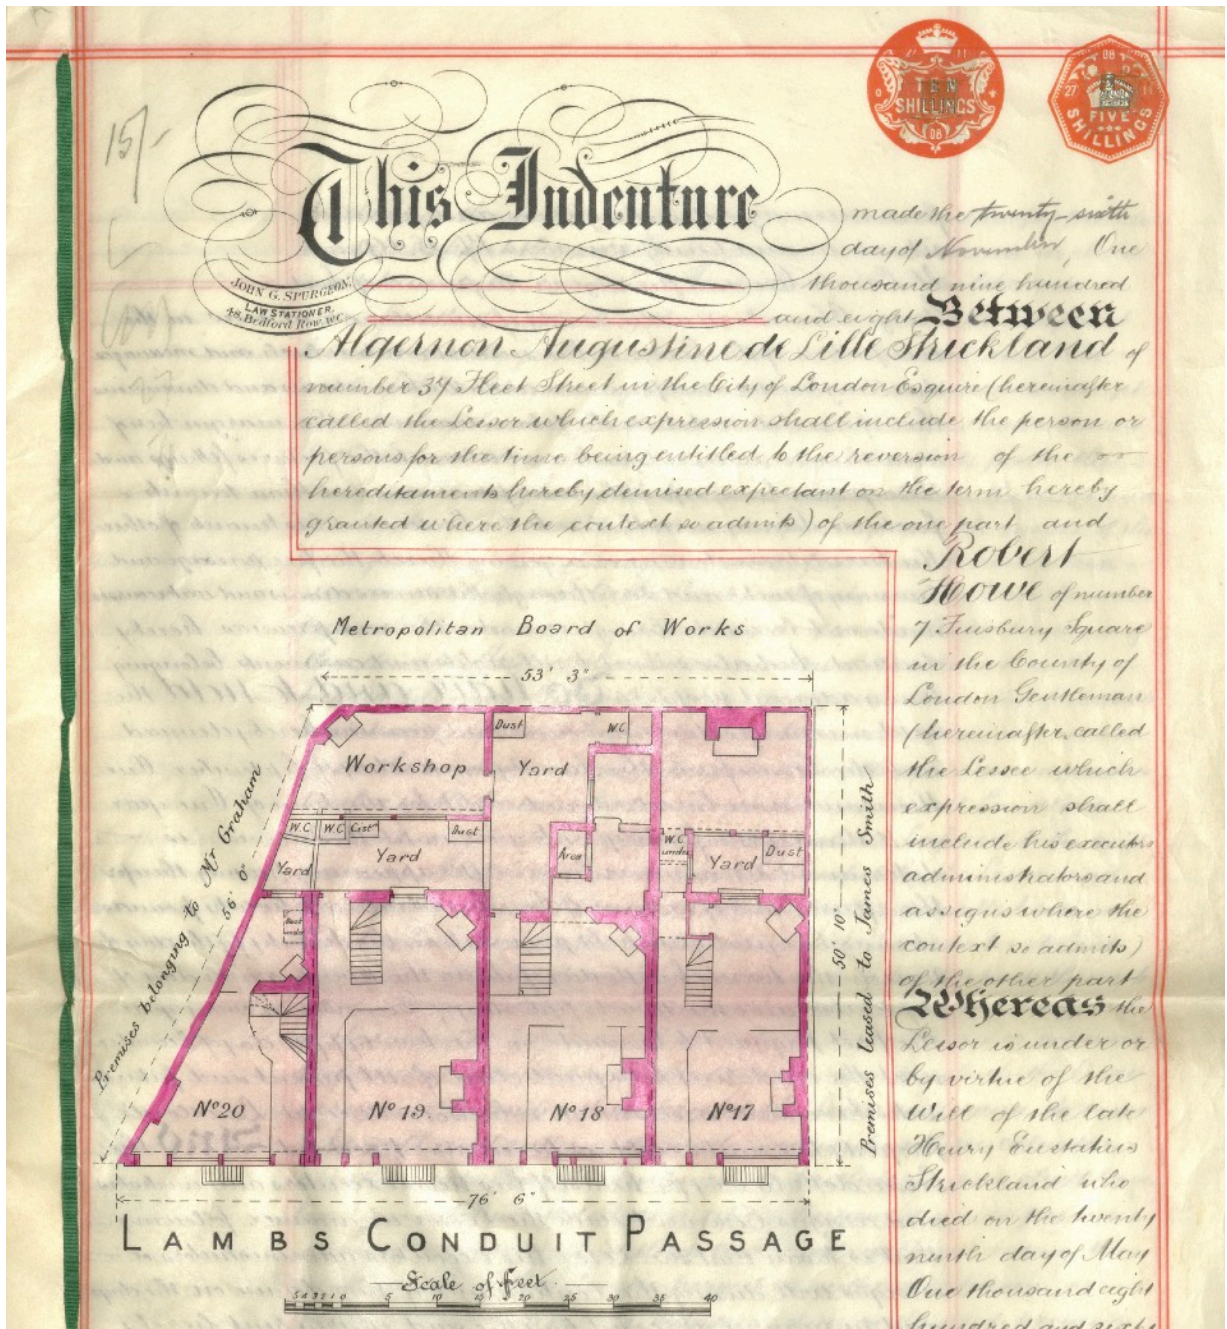 15/-
TEN
SHILLINGS
08
08
27 11
FIVE
SHILLINGS
This Indenture
JOHN G. SPURGEON,
LAW STATIONER,
48, Bedford Row, W.C.
made the twenty-sixth
day of November, One
thousand nine hundred
and eight Between
Algernon Augustine de Lille Strickland of
number 37 Fleet Street in the City of London Esquire (hereinafter
called the Lessor which expression shall include the person or
persons for the time being entitled to the reversion of the
hereditaments hereby demised expectant on the term hereby
granted where the context so admits) of the one part and
Robert
Howe of number
7 Finsbury Square
in the County of
London Gentleman
(hereinafter called
the Lessee which
expression shall
include his executors
administrators and
assigns where the
context so admits)
of the other part
Whereas the
Lessor is under or
by virtue of the
Will of the late
Henry Eustatius
Strickland who
died on the twenty
ninth day of May
One thousand eight
hundred and sixty
Metropolitan Board of Works
53' 3"
Dust
W.C
Workshop
Yard
W.C
W.C
Cisn
Dust
Yard
Yard
Area
W.C
under
Yard
Dust
Premises belonging to Mr Graham
56' 0"
50' 10"
Premises leased to James Smith
No 20
No 19.
No 18
No 17
76' 6"
LAMBS CONDUIT PASSAGE
Scale of feet
5 4 3 2 1 0 5 10 15 20 25 30 35 40